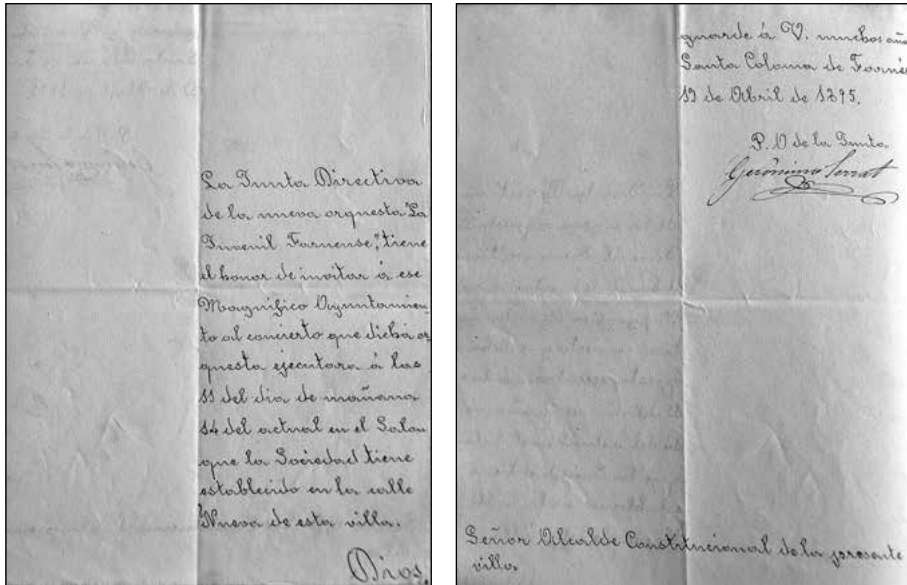 La Junta Directiva
de la nueva orquesta "La
Juvenil Farnense," tiene
el honor de invitar á ese
Magnífico Ayuntamien-
to al concierto que dicha or
questa ejecutara á las
11 del dia de mañana
14 del actual en el Salon
que la Sociedad tiene
establecido en la calle
Nueva de esta villa.
Dios
guarde á V. muchos año
Santa Coloma de Farné
13 de Abril de 1895.
P. O de la Junta
Gerónimo Serrat
Señor Alcalde Constitucional de la presente
villa.